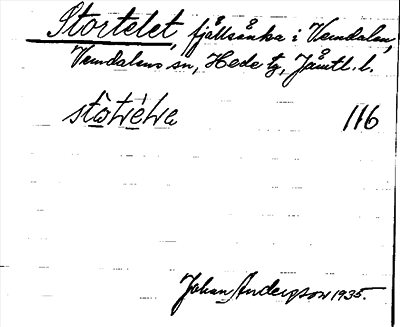 Stortelet, fjällsänka i Vemdalen,
Vemdalens sn, Hede tg, Jämtl. l.
116
Johan Anderson 1935.